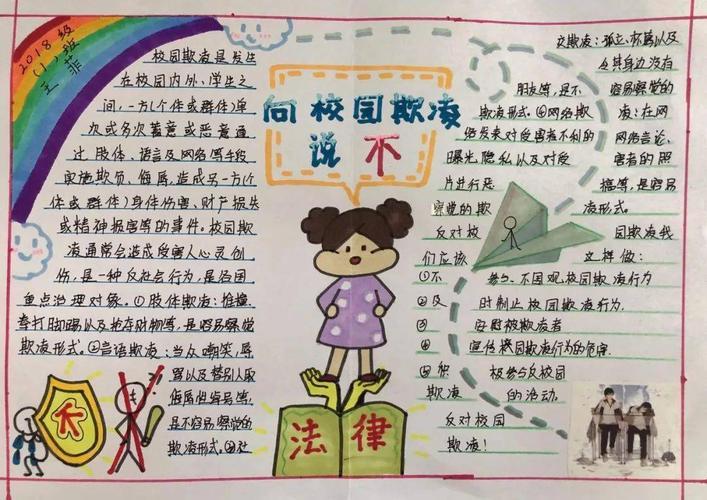 2018级
(1)班
王菲
向校园欺凌
说不
校园欺凌是发生
在校园内外、学生之
间,一方(个体或群体)单
次或多次蓄意或恶意通
过肢体、语言及网络等手段
实施欺负、侮辱,造成另一方(个
体或群体)身体伤害、财产损失
或精神损害等的事件。校园欺
凌通常会造成受害人心灵创
伤,是一种反社会行为,是各国
重点治理对象。①肢体欺凌:推撞、
拳打脚踢以及抢夺财物等,是容易察觉
欺凌形式。②言语欺凌:当众嘲笑、辱
骂以及替别人取
侮辱性绰号等,
是不容易察觉的
欺凌形式。③社
交欺凌:孤立、杯葛以及
令其身边没有
朋友等,是不 容易察觉的
欺凌形式。④网络欺 凌:在网
络发表对受害者不利的 网络言论、
曝光隐私以及对受 害者的照
片进行恶 搞等,是容易
察觉的欺 凌形式。
反对校 园欺凌我
们应该 这样做:
①不 参与、不围观校园欺凌行为
②及 时制止校园欺凌行为.
③ 安慰被欺凌者
④ 宣传校园欺凌行为的危害.
⑤积 极参与反校园
欺凌 的活动.
反对校园
欺凌!
法律